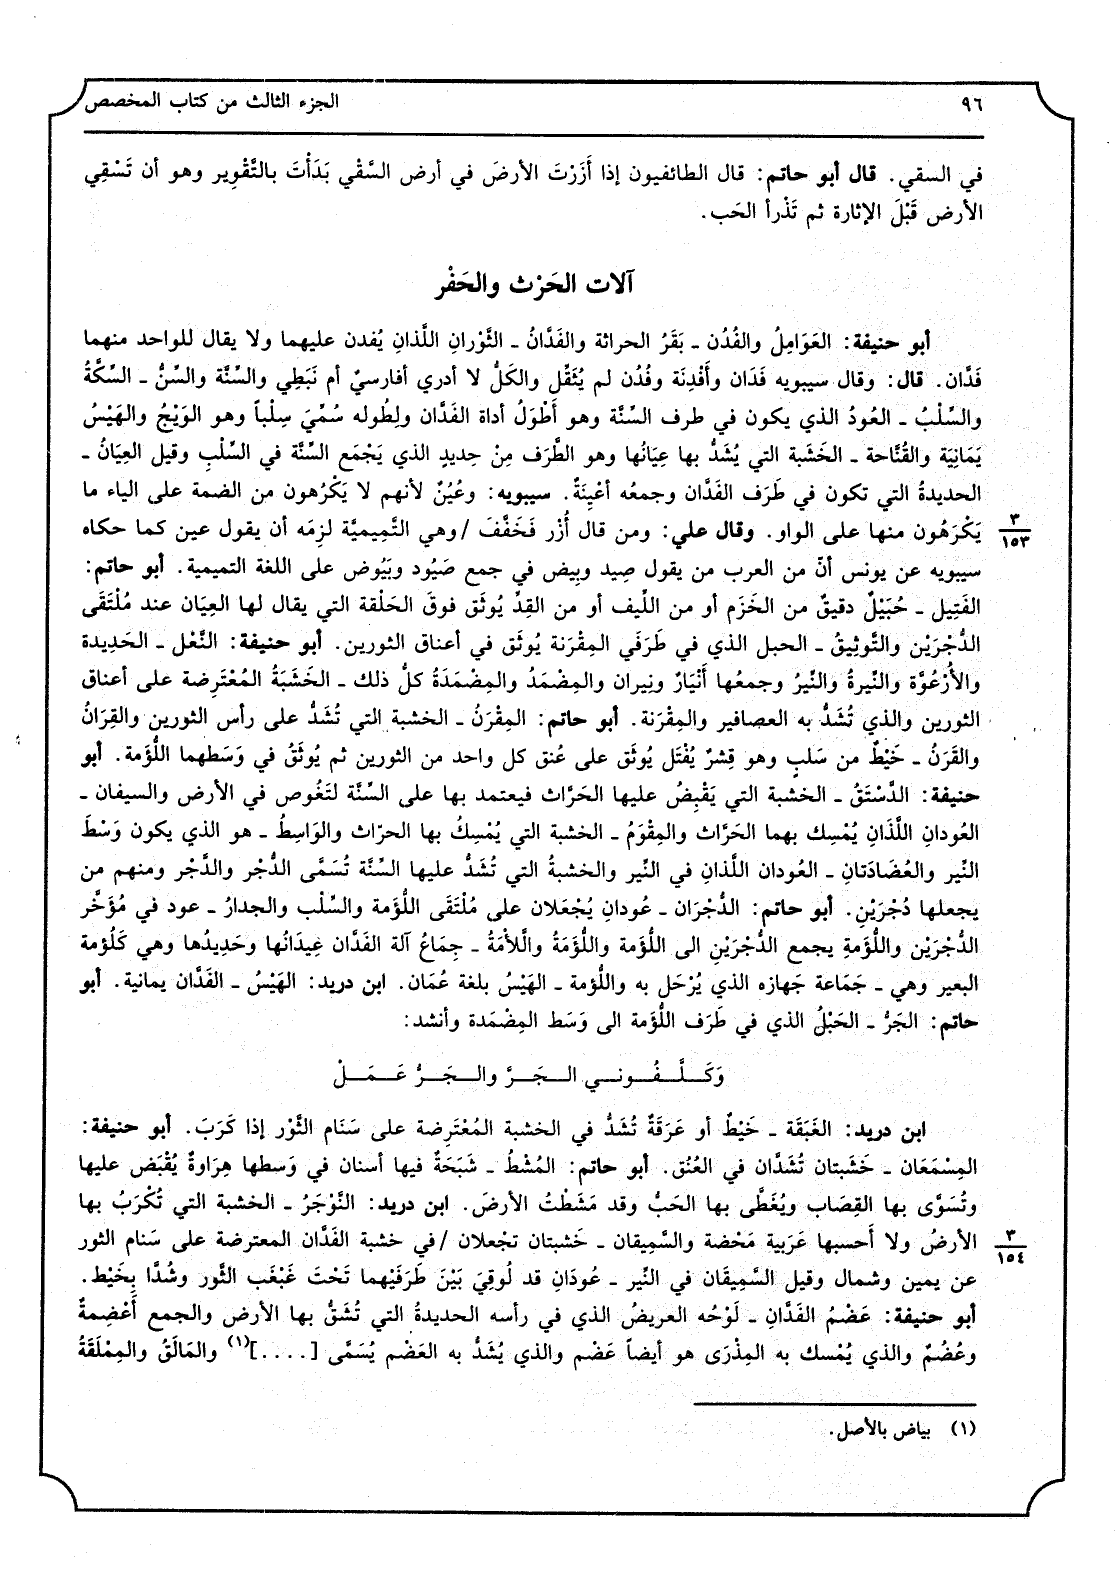 ٩٦ الجزء الثالث من كتاب المخصص
في السقي. قال أبو حاتم: قال الطائفيون إذا أَزَرْتَ الأرضَ في أرض السَّقْي بَدَأْتَ بالتَّقْوِير وهو أن تَسْقِي
الأرض قَبْلَ الإثارة ثم تَذْرأ الحَب.
آلات الحَرْث والحَفْر
أبو حنيفة: العَوَامِلُ والفُدُن ـ بَقَرُ الحراثة والفَدَّانُ ـ الثَّوْرانِ اللَّذانِ يُفدن عليهما ولا يقال للواحد منهما
فَدَّان. قال: وقال سيبويه فَدَان وأَفْدِنَة وفُدُن لم يُثَقْل والكَلُّ لا أدري أفارسيٌ أم نَبَطِي والسِّنَّة والسِّنُّ ـ السكَّةُ
والسِّلْبُ ـ العُودُ الذي يكون في طرف السِّنَّة وهو أَطْوَلُ أداة الفَدَّان ولِطُوله سُمِّيَ سِلْباً وهو الوَيْجُ والهَيْسُ
يَمَانِيَة والقُنَّاحة ـ الخَشَبة التي يُشَدُّ بها عِيَانُها وهو الطَّرَف مِنْ حِديدٍ الذي يَجْمَع السِّنَّة في السِّلْبِ وقيل العِيَانُ ـ
الحديدةُ التي تكون في طَرَف الفَدَّان وجمعُه أعْيِنَةٌ. سيبويه: وعُيُنٌ لأنهم لا يَكْرُهون من الضمة على الياء ما
يَكْرَهُون منها على الواو. وقال علي: ومن قال أُزْر فَخَفَّفَ /وهي التَّمِيميَّة لزِمَه أن يقول عين كما حكاه
٣
١٥٣
سيبويه عن يونس أنّ من العرب من يقول صِيد وبِيض في جمع صَيُود وبَيُوض على اللغة التميمية. أبو حاتم:
الفَتِيل ـ حُبَيْلٌ دقيقٌ من الخَزَم أو من اللِّيف أو من القِدِّ يُوثَق فوقَ الحَلْقة التي يقال لها العِيَان عند مُلْتَقَى
الدُّجْرَيْن والتَّوثِيقُ ـ الحبل الذي في طَرَفَي المِقْرَنة يُوثَق في أعناق الثورين. أبو حنيفة: النَّعْل ـ الحَدِيدة
والأُرْعُوَّة والنِّيرةُ والنِّيرُ وجمعُها أَنْيَارٌ ونِيران والمِضْمَدُ والمِضْمَدَةُ كلُّ ذلك ـ الخَشَبَةُ المُعْتَرِضة على أعناق
الثورين والذي تُشَدُّ به العصافير والمِقْرَنة. أبو حاتم: المِقْرَنُ ـ الخشبة التي تُشَدُّ على رأس الثورين والقِرَانُ
والقَرَنُ ـ خَيْطٌ من سَلَبٍ وهو قِشرٌ يُفْتَل يُوثَق على عُنق كل واحد من الثورين ثم يُوثَقُ في وَسَطهما اللُّؤَمة. أبو
حنيفة: الدَّسْتَقُ ـ الخشبة التي يَقْبِضُ عليها الحَرَّاث فيعتمد بها على السِّنَّة لتَغُوص في الأرض والسيفان ـ
العُودانِ اللَّذَانِ يُمْسِك بهما الحَرَّاث والمِقْوَمُ ـ الخشبة التي يُمْسِكُ بها الحرّاث والوَاسِطُ ـ هو الذي يكون وَسْطَ
النِّير والعُضَادَتانِ ـ العُودان اللَّذانِ في النِّير والخشبةُ التي تُشَدُّ عليها السِّنَّة تُسَمَّى الدُّجْر والدَّجْر ومنهم من
يجعلها دُجْرَيْنِ. أبو حاتم: الدُّجْرَان ـ عُودانِ يُجْعَلان على مُلْتَقَى اللُّؤَمة والسِّلْب والجدارُ ـ عود في مُؤَخَّر
الدُّجْرَيْن واللُّؤَمةِ يجمع الدُّجْرَيْنِ الى اللُّؤَمة واللُّؤَمَةُ واللَّأْمَةُ ـ جِمَاعُ آلة الفَدَّان عِيدَانُها وحَدِيدُها وهي كَلُؤمة
البعير وهي ـ جَمَاعة جَهازه الذي يُرْحَل به واللُّؤمة ـ الهَيْسُ بلغة عُمَان. ابن دريد: الهَيْسُ ـ الفَدَّان يمانية. أبو
حاتم: الجَرُّ ـ الحَبْلُ الذي في طَرَف اللُّؤَمة الى وَسَط المِضْمَدة وأنشد:
وَكَلَّـفُـونـي الـجَـرَّ والـجَـرُّ عَـمَـلْ
ابن دريد: الغَبَقَة ـ خَيْطٌ أو عَرَقَةٌ تُشَدُّ في الخشبة المُعْتَرِضة على سَنَام الثَّوْر إذا كَرَبَ. أبو حنيفة:
المِسْمَعَان ـ خَشَبتان تُشَدَّان في العُنُق. أبو حاتم: المُشْطُ ـ شَبَحَةٌ فيها أسنان في وَسطها هِرَاوةٌ يُقْبَض عليها
وتُسَوَّى بها القِصَاب ويُغَطَّى بها الحَبُّ وقد مَشَطْتُ الأرضَ. ابن دريد: النَّوْجَرُ ـ الخشبة التي تُكْرَبُ بها
الأرضُ ولا أَحسبها عَرَبية مَحْضة والسَّمِيقان ـ خَشبتان تجْعلان /في خشبة الفَدَّان المعترضة على سَنام الثور
٣
١٥٤
عن يمين وشمال وقيل السَّمِيقَان في النِّير ـ عُودَان قد لُوقِيَ بَيْنَ طَرَفَيْهما تَحْتَ غَبْغَب الثَّور وشُدَّا بِخَيْط.
أبو حنيفة: عَضْمُ الفَدَّانِ ـ لَوْحُه العريضُ الذي في رأسه الحديدةُ التي تُشَقُّ بها الأرض والجمع أَعْضِمةٌ
وعُضُمٌ والذي يُمْسك به المِذْرَى هو أيضاً عَضْم والذي يُشَدُّ به العَضْم يُسَمَّى [....](١) والمَالَقُ والمِمْلَقَةُ
(١) بياض بالأصل.